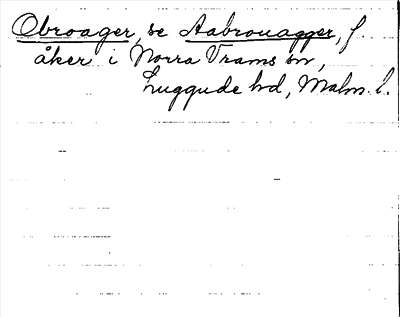 Obroager, se Aabrouagger, f.
åker i Norra Vrams sn,
Luggude hd, Malm. l.